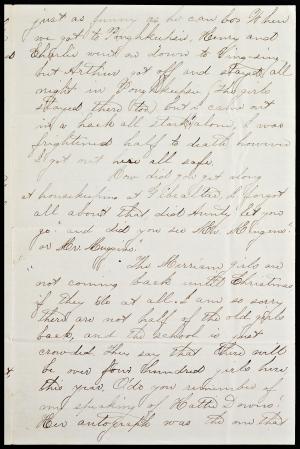 just as funny as he can be. When
we got to Poughkeepsie, Henry and
Charlie went on down to Sing-sing
but Arthur got off and stayed all
night in Poughkeepsie, The girls
stayed there (too) but I came out
in a hack all stark alone, I was
frightened half to death however
I got out all safe.
How did you get along
at housekeeping at Gibralter, I forgot
all about that did Aunty let you
go? and did you see Mr.
or Mr. Huggins?
"The Merriam girls are
not coming back until Christmas
if they do at all. I am so sorry
there are not half of the old girls
back, and the school is just
crowded they say that there will
be over four hundred girls here
this year. O! do you remember of
my speaking of Hattie Downs?
Her autograph was the one that